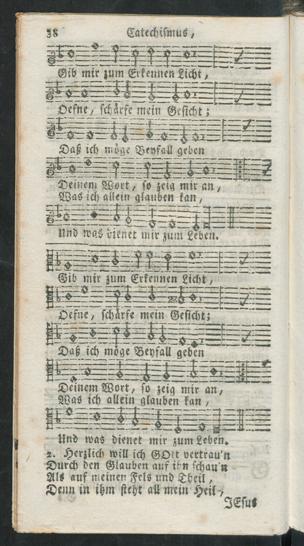 38 Catechismus,
Gib mir zum Erkennen Licht,
Oefne, schärfe mein Gesicht;
Daß ich möge Beyfall geben
Deinem Wort, so zeig mir an,
Was ich allein glauben kan,
Und was dienet mir zum Leben.
Gib mir zum Erkennen Licht,
Oefne, schärfe mein Gesicht;
Daß ich möge Beyfall geben
Deinem Wort, so zeig mir an,
Was ich allein glauben kan,
Und was dienet mir zum Leben.
2. Herzlich will ich GOtt vertrau'n
Durch den Glauben auf ihn schau'n
Als auf meinen Fels und Theil,
Denn in ihm steht all mein Heil,
JEsus